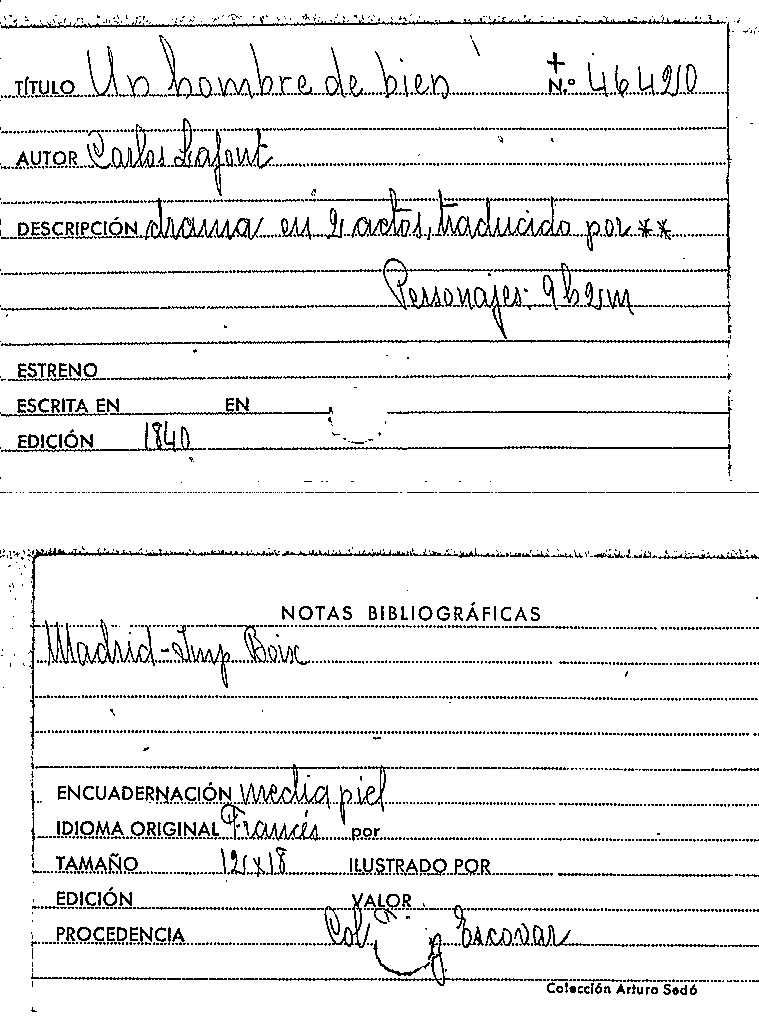 TÍTULO Un hombre de bien + N.º 464210
AUTOR Carlos Lafont
DESCRIPCIÓN drama en 2 actos, traducido por **
Personajes: 9h 2m
ESTRENO
ESCRITA EN EN
EDICIÓN 1840
NOTAS BIBLIOGRÁFICAS
Madrid - Imp Boix
ENCUADERNACIÓN media piel
IDIOMA ORIGINAL Francés por
TAMAÑO 12x18 ILUSTRADO POR
EDICIÓN VALOR
PROCEDENCIA Col. Escovar
Colección Arturo Sedó